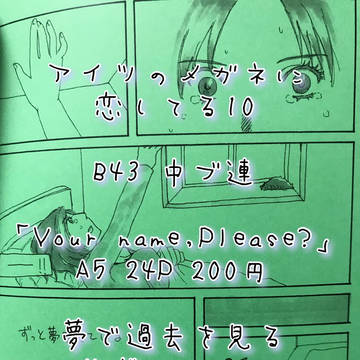 アイツのメガネに
恋してる10
B43 中ブ連
「Your name,Please?」
A5 24P 200円
ずっと夢
夢で過去を見る